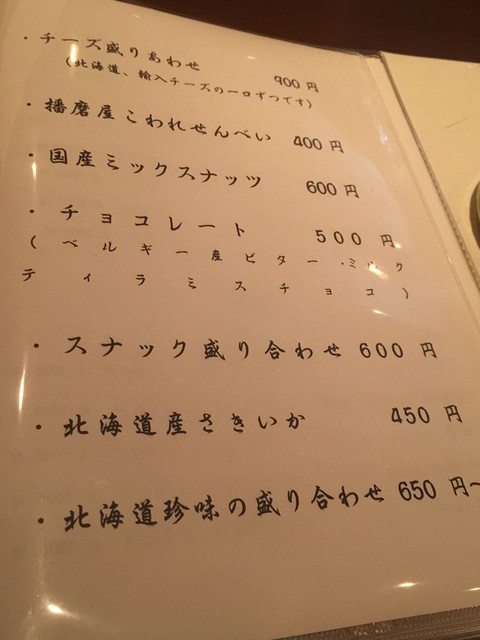 ・チーズ盛りあわせ 900 円
(北海道、輸入チーズの一口ずつです)
・播磨屋こわれせんべい 400 円
・国産ミックスナッツ 600 円
・チョコレート 500 円
(ベルギー産ビター・ミルク
ティラミスチョコ)
・スナック盛り合わせ 600 円
・北海道産さきいか 450 円
・北海道珍味の盛り合わせ 650 円~